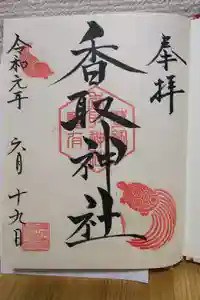 奉拝
香取神社
令和元年 六月 十九日